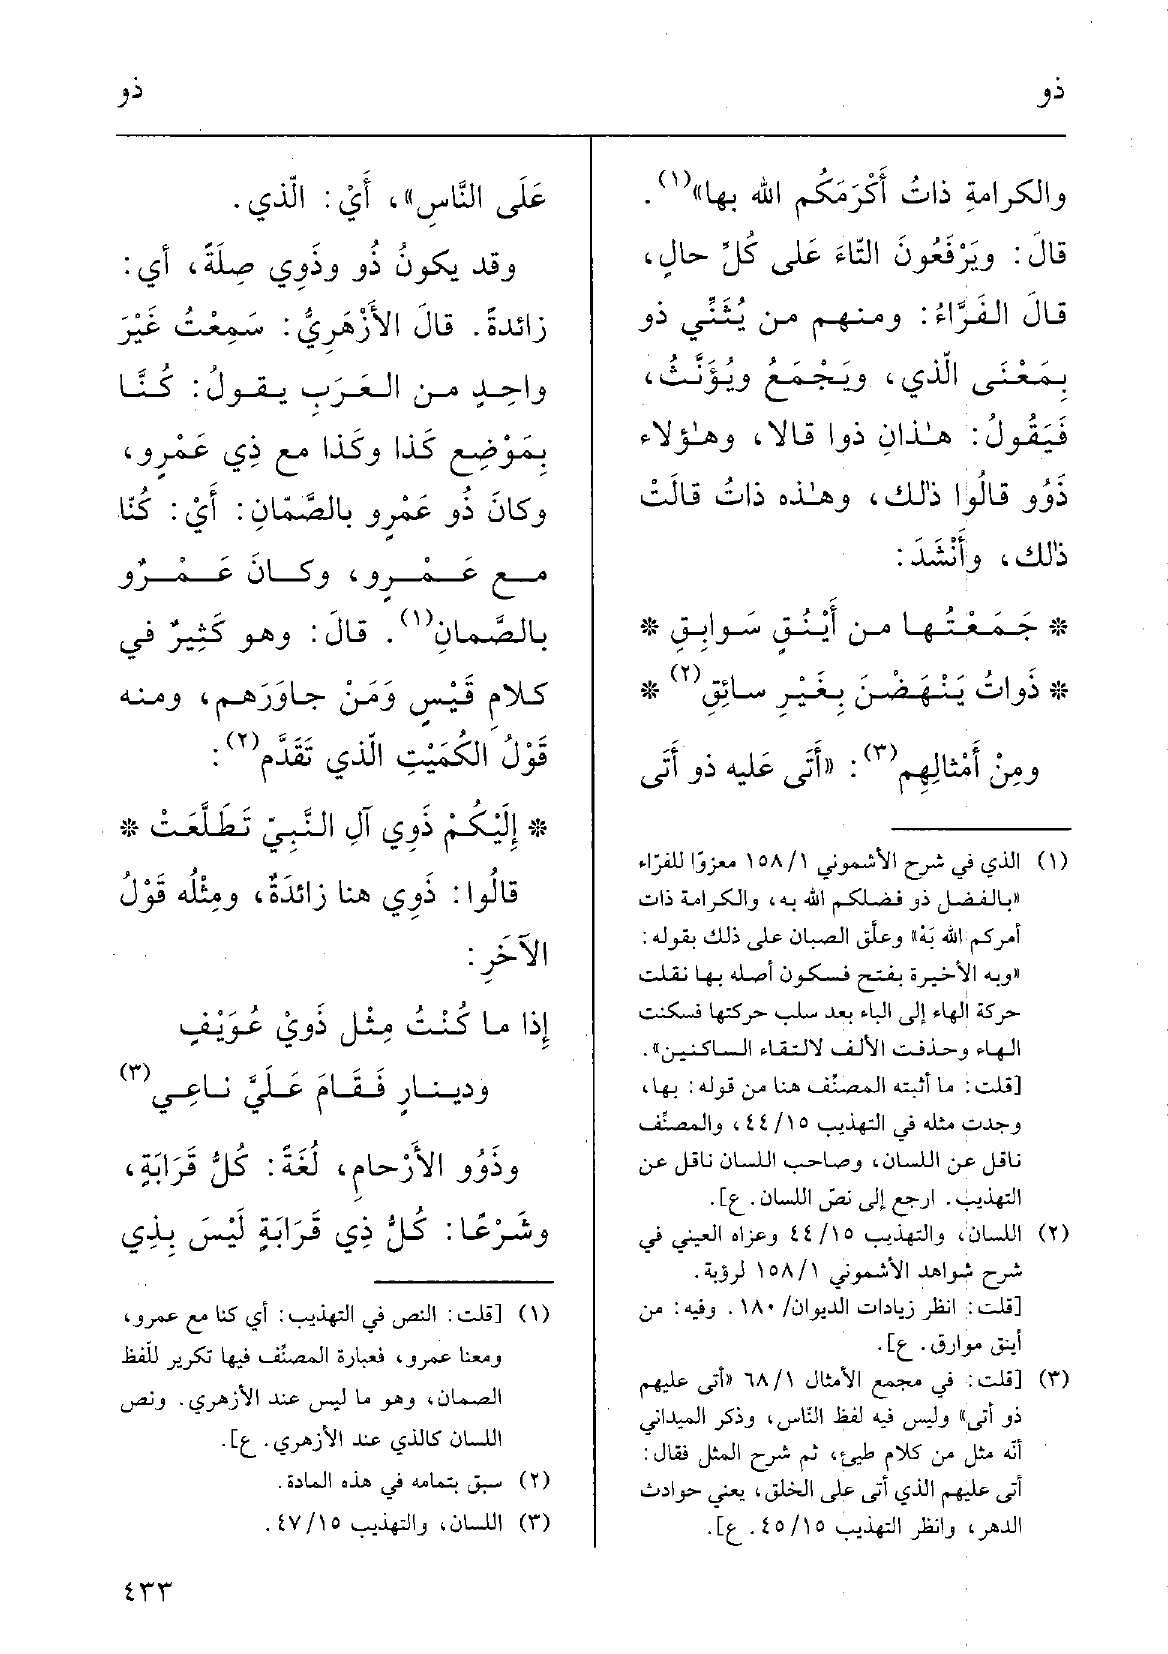 ذو
ذو
والكرامةِ ذاتُ أَكْرَمَكُم الله بها»(١).
قالَ: ويَرْفَعُونَ التّاءَ عَلى كُلِّ حالٍ،
قالَ الفَرَّاءُ: ومنهم من يُثَنِّي ذو
بِمَعْنَى الّذي، ويَجْمَعُ ويُؤَنِّثُ،
فَيَقُولُ: هٰذانِ ذوا قالا، وهٰؤلاء
ذَوُو قالُوا ذٰلك، وهٰذه ذاتُ قالَتْ
ذٰلك، وأَنْشَدَ:
* جَمَعْتُها من أَيْنُقٍ سَوابِقِ *
* ذَواتُ يَنْهَضْنَ بِغَيْرِ سائِقِ(٢) *
ومِنْ أَمْثالِهِم(٣): «أَتَى عَليه ذو أَتَى
(١) الذي في شرح الأشموني ١/١٥٨ معزوًا للفرّاء
«بالفضل ذو فضلكم الله به، والكرامة ذات
أمركم الله بَهْ» وعلّق الصبان على ذلك بقوله:
«وبه الأخيرة بفتح فسكون أصله بها نقلت
حركة الهاء إلى الباء بعد سلب حركتها فسكنت
الهاء وحذفت الألف لالتقاء الساكنين».
[قلت: ما أثبته المصنّف هنا من قوله: بها،
وجدت مثله في التهذيب ٤٤/١٥، والمصنّف
ناقل عن اللسان، وصاحب اللسان ناقل عن
التهذيب. ارجع إلى نصّ اللسان. ع].
(٢) اللسان، والتهذيب ٤٤/١٥ وعزاه العيني في
شرح شواهد الأشموني ١٥٨/١ لرؤبة.
[قلت: انظر زيادات الديوان/ ١٨٠. وفيه: من
أينق موارق. ع].
(٣) [قلت: في مجمع الأمثال ٦٨/١ «أتى عليهم
ذو أتى» وليس فيه لفظ النّاس، وذكر الميداني
أنّه مثل من كلام طيئ، ثم شرح المثل فقال:
أتى عليهم الذي أتى على الخلق، يعني حوادث
الدهر، وانظر التهذيب ٤٥/١٥. ع].
عَلَى النَّاسِ»، أَيْ: الّذي.
وقد يكونُ ذُو وذَوِي صِلَةً، أي:
زائدةً. قالَ الأَزْهَرِيُّ: سَمِعْتُ غَيْرَ
واحِدٍ من العَرَبِ يقولُ: كُنَّا
بِمَوْضِعِ كَذا وكَذا مع ذِي عَمْرٍو،
وكانَ ذُو عَمْرٍو بالصَّمّانِ: أَيْ: كُنّا
مع عَمْرٍو، وكانَ عَمْرٌو
بالصَّمانِ(١). قالَ: وهو كَثِيرٌ في
كلامِ قَيْسٍ وَمَنْ جاوَرَهم، ومنه
قَوْلُ الكُمَيْتِ الّذي تَقَدَّم(٢):
* إِلَيْكُمْ ذَوِي آلِ النَّبِيّ تَطَلَّعَتْ *
قالُوا: ذَوِي هنا زائدَةٌ، ومِثْلُه قَوْلُ
الآخَرِ:
إذا ما كُنْتُ مِثْل ذَوِيْ عُوَيْفٍ
ودينارٍ فَقامَ عَلَيَّ ناعِي(٣)
وذَوُو الأَرْحامِ، لُغَةً: كُلُّ قَرَابَةٍ،
وشَرْعًا: كُلُّ ذِي قَرَابَةٍ لَيْسَ بِذِي
(١) [قلت: النص في التهذيب: أي كنا مع عمرو،
ومعنا عمرو، فعبارة المصنّف فيها تكرير للّفظ
الصمان، وهو ما ليس عند الأزهري. ونص
اللسان كالذي عند الأزهري. ع].
(٢) سبق بتمامه في هذه المادة.
(٣) اللسان، والتهذيب ٤٧/١٥.
٤٣٣